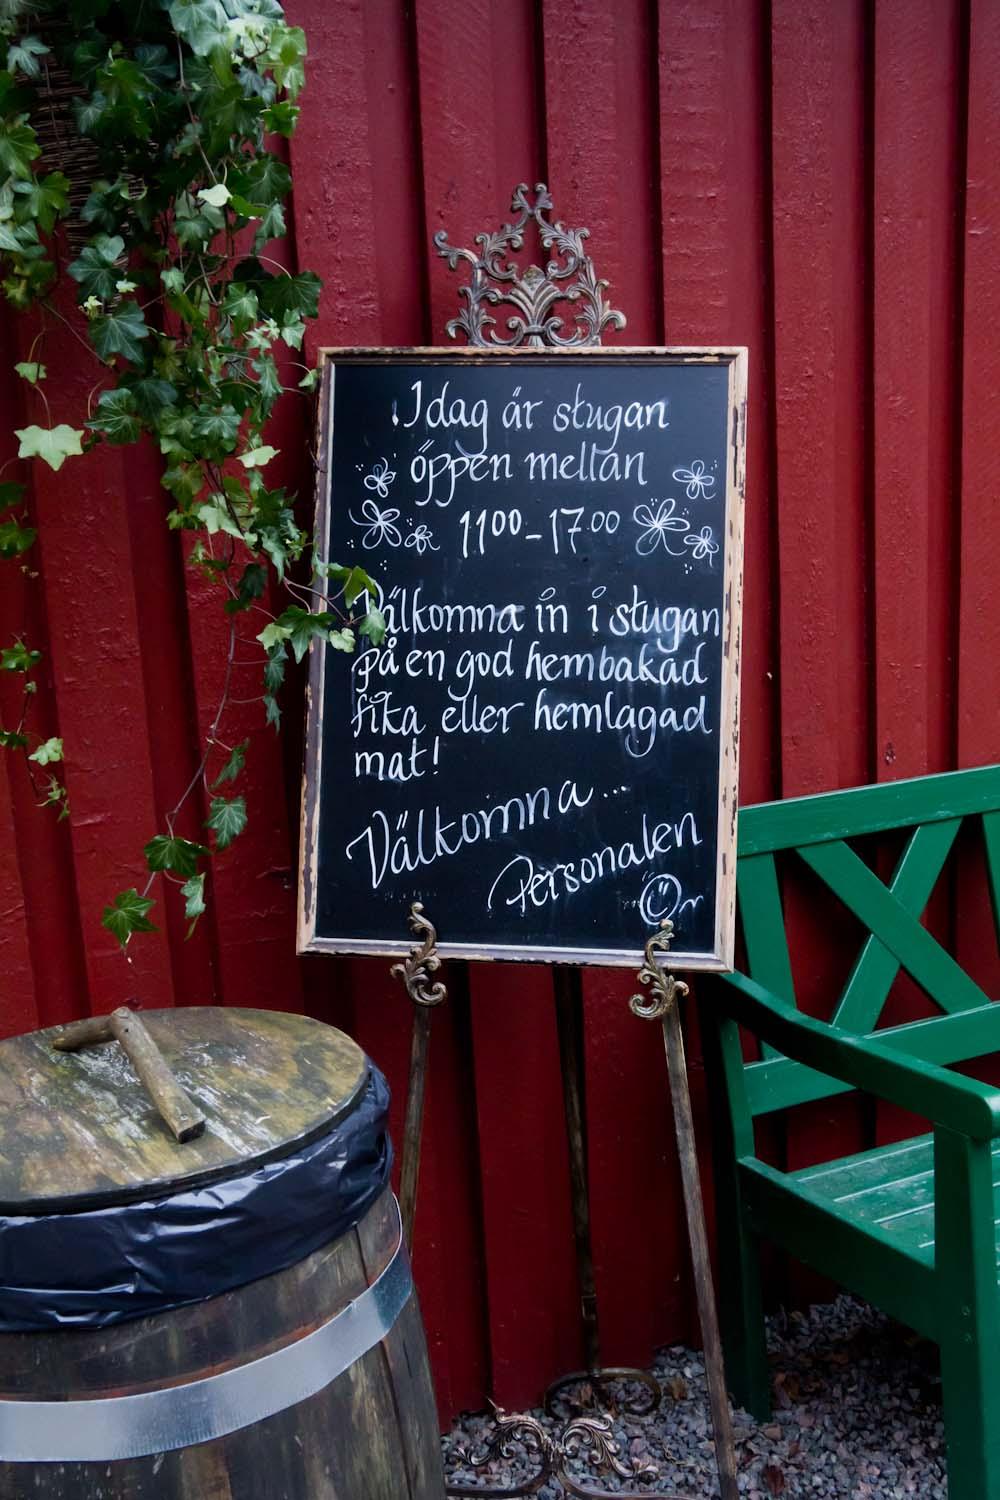 Idag är stugan
öppen mellan
11⁰⁰-17.⁰⁰
Välkomna in i stugan
på en god hembakad
fika eller hemlagad
mat!
Välkomna...
Personalen